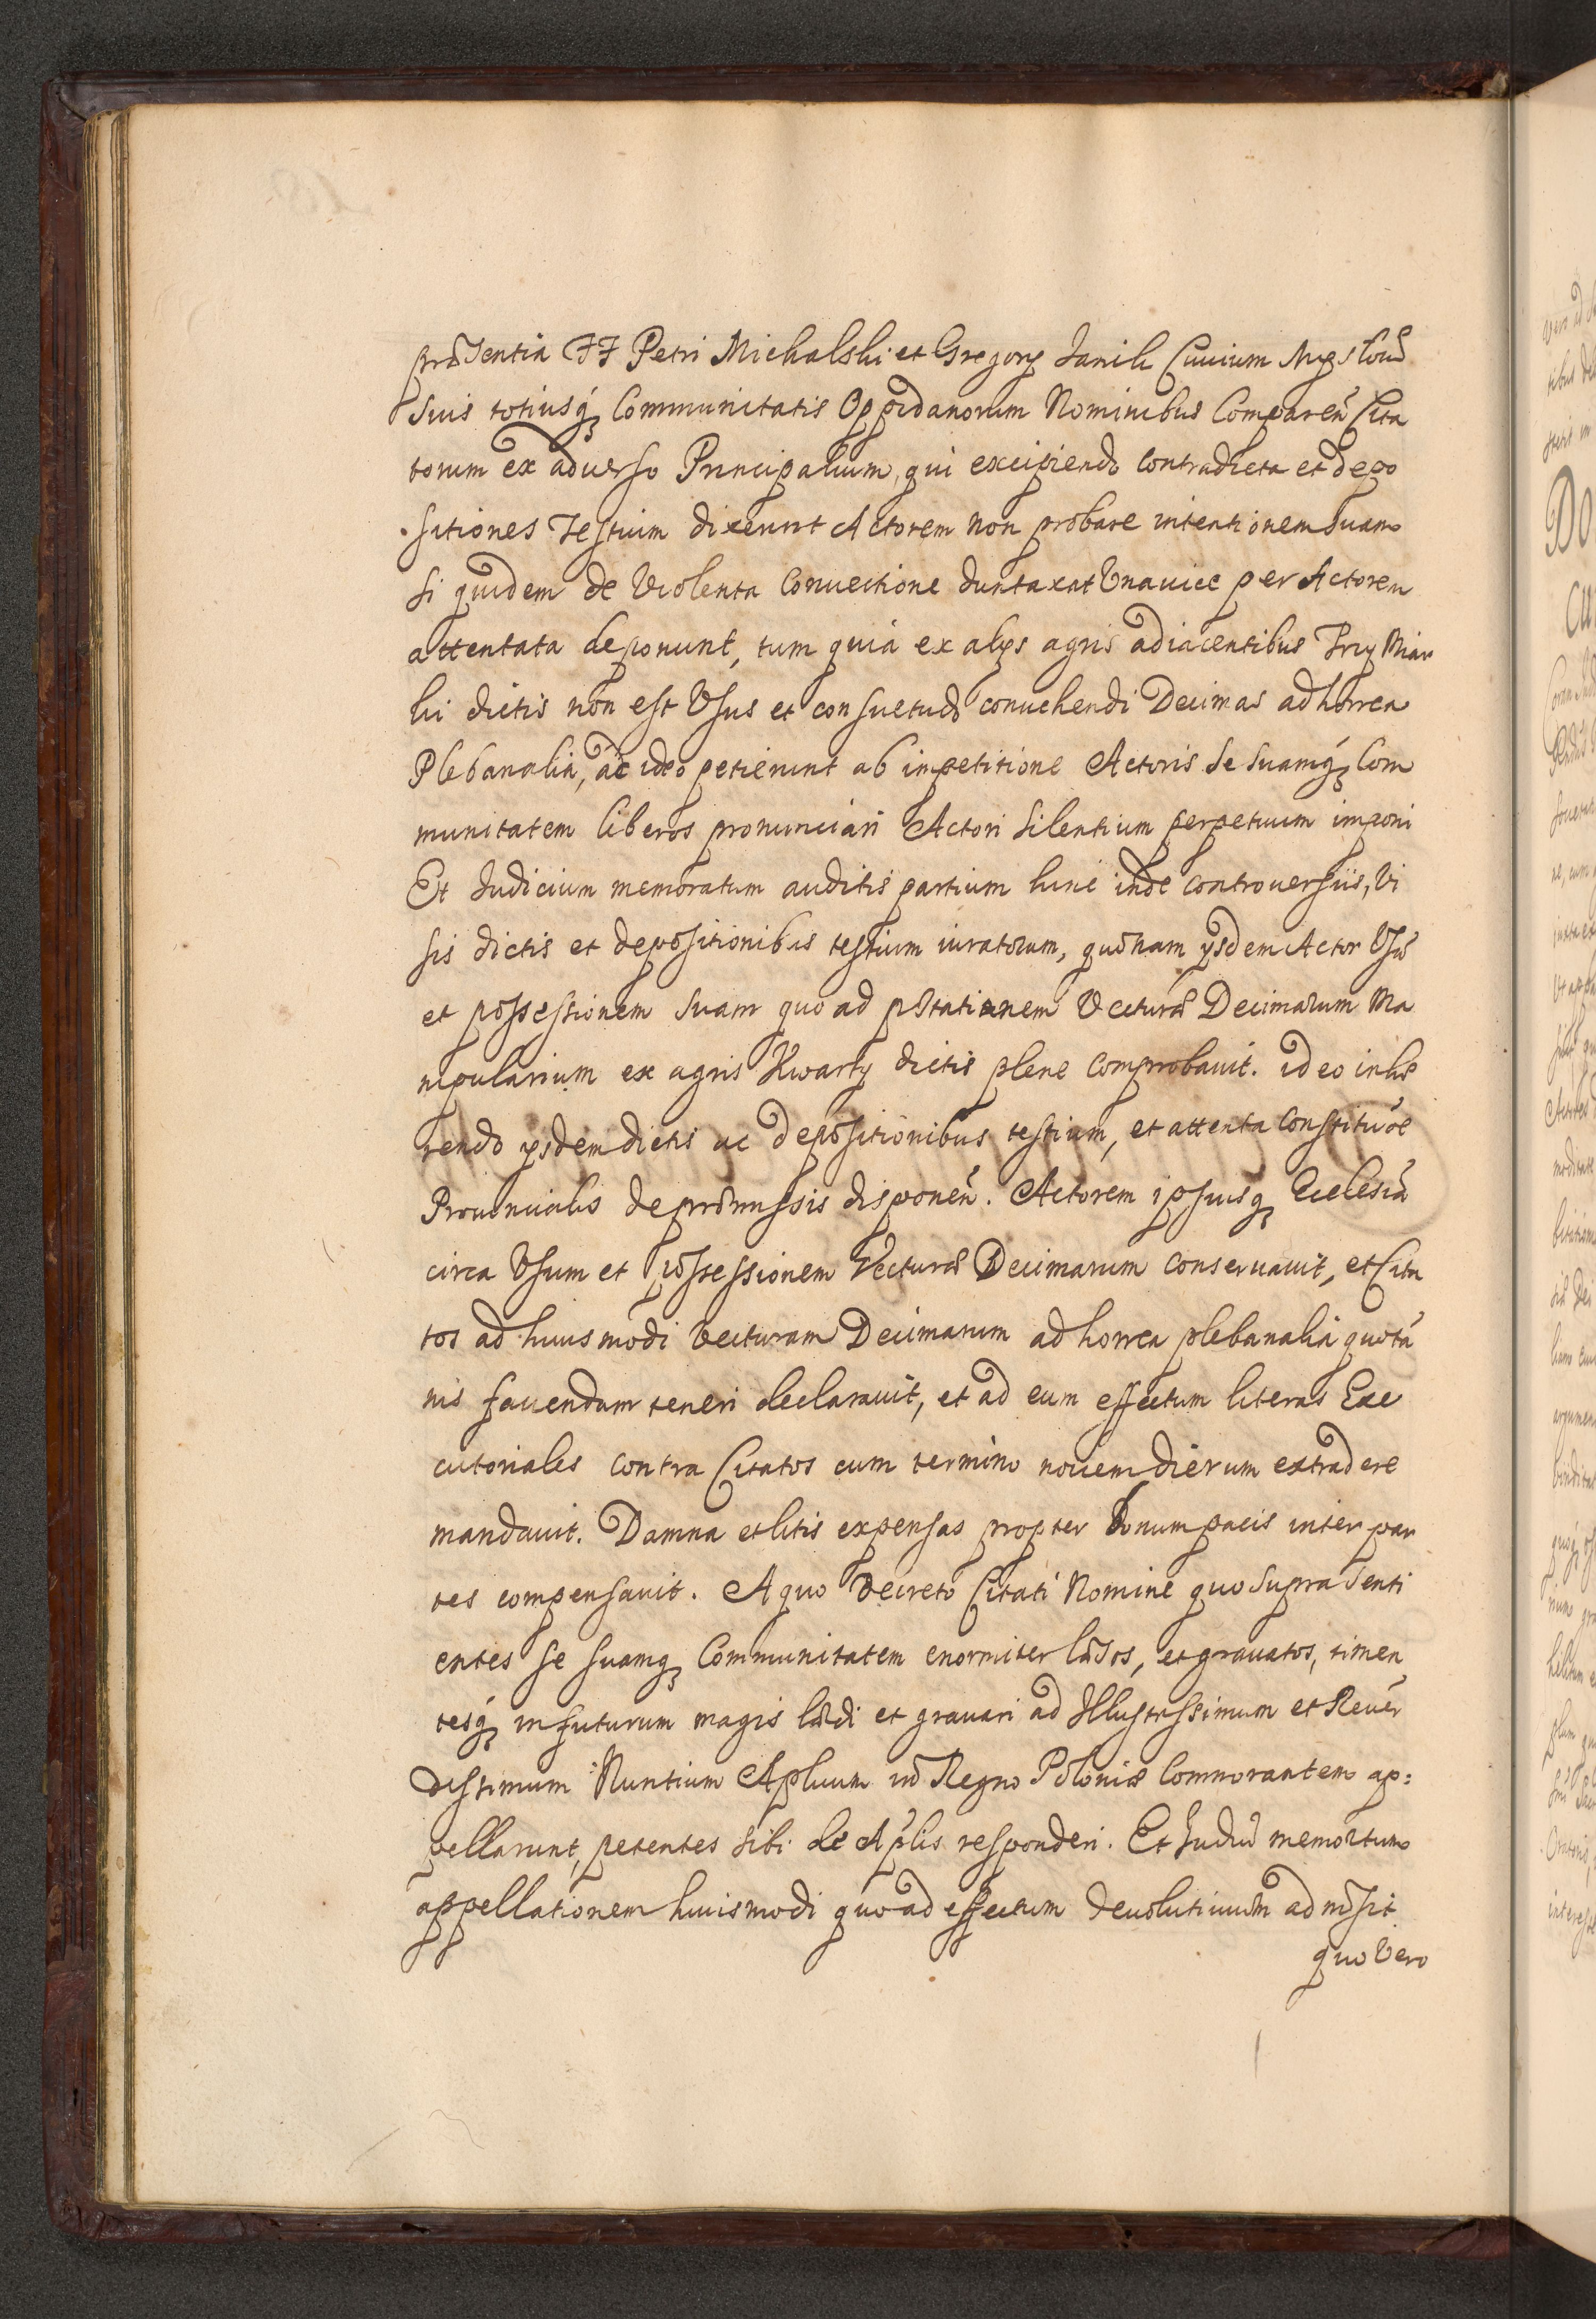 præsentia FF Petri Michalski et Gregorij Janik Ciuium Mysloui
Suis totiusq₃ Communitatis Oppidanorum Nominibus Compareñ Cita
torum ex aduerso Principalium, qui excipiendo contradicta et depo
sitiones Testium dixerunt Actorem non probare intentionem suam
si quidem de Violenta Conuectione duntaxat Vnauice per Actorem
attentata deponunt, tum quia ex alijs agris adiacentibus Trzy Miar
ki dictis non est Vsus et consuetudo conuehendi Decimas ad horrea
Plebanalia, ac ideo petierunt ab impetitione Actoris se suamq₃ Com
munitatem liberos pronunciari Actori Silentium perpetuum imponi
Et Judicium memoratum auditis partium hinc inde controuersiis, Vi
sis dictis et depositionibus testium iuratorum, quoñiam ysdem Actor Vsū
et possessionem suam quo ad pstationem Vecturæ Decimarum Ma
nipularium ex agris Kwarty dictis plene comprobauit. ideo inhæ
rendo ysdem dictis ac depositionibus testium, et attenta Constitūōe
Prouincialis de præmissis disponeñ. Actorem ipsiusq₃ Ecclesiā
circa Vsum et possessionem Vecturæ Decimarum conseruauit, et Cita
tos ad huiusmodi Vecturam Decimarum ad horrea plebanalia quotā
nis fauendam teneri declarauit, et ad eum effectum literas Exe
cutoriales contra Citatos cum termino nouem dierum extradere
mandauit. Damna et litis expensas propter bonum pacis inter par
tes compensauit. A quo Decreto Citati Nomine quo supra Senti
entes se suamq₃ Communitatem enormiter læsos, et grauatos, timen
tesq₃ in futurum magis lædi et grauari ad Illustrissimum et Reuer
dissimum Nuntium Aplicum in Regno Poloniæ Commorantem ap:
pellarunt, petentes sibi de Aplis responderi. Et Judiū memoratum
appellationem huiusmodi quo ad effectum deuolutiuum admisit
quo Vero